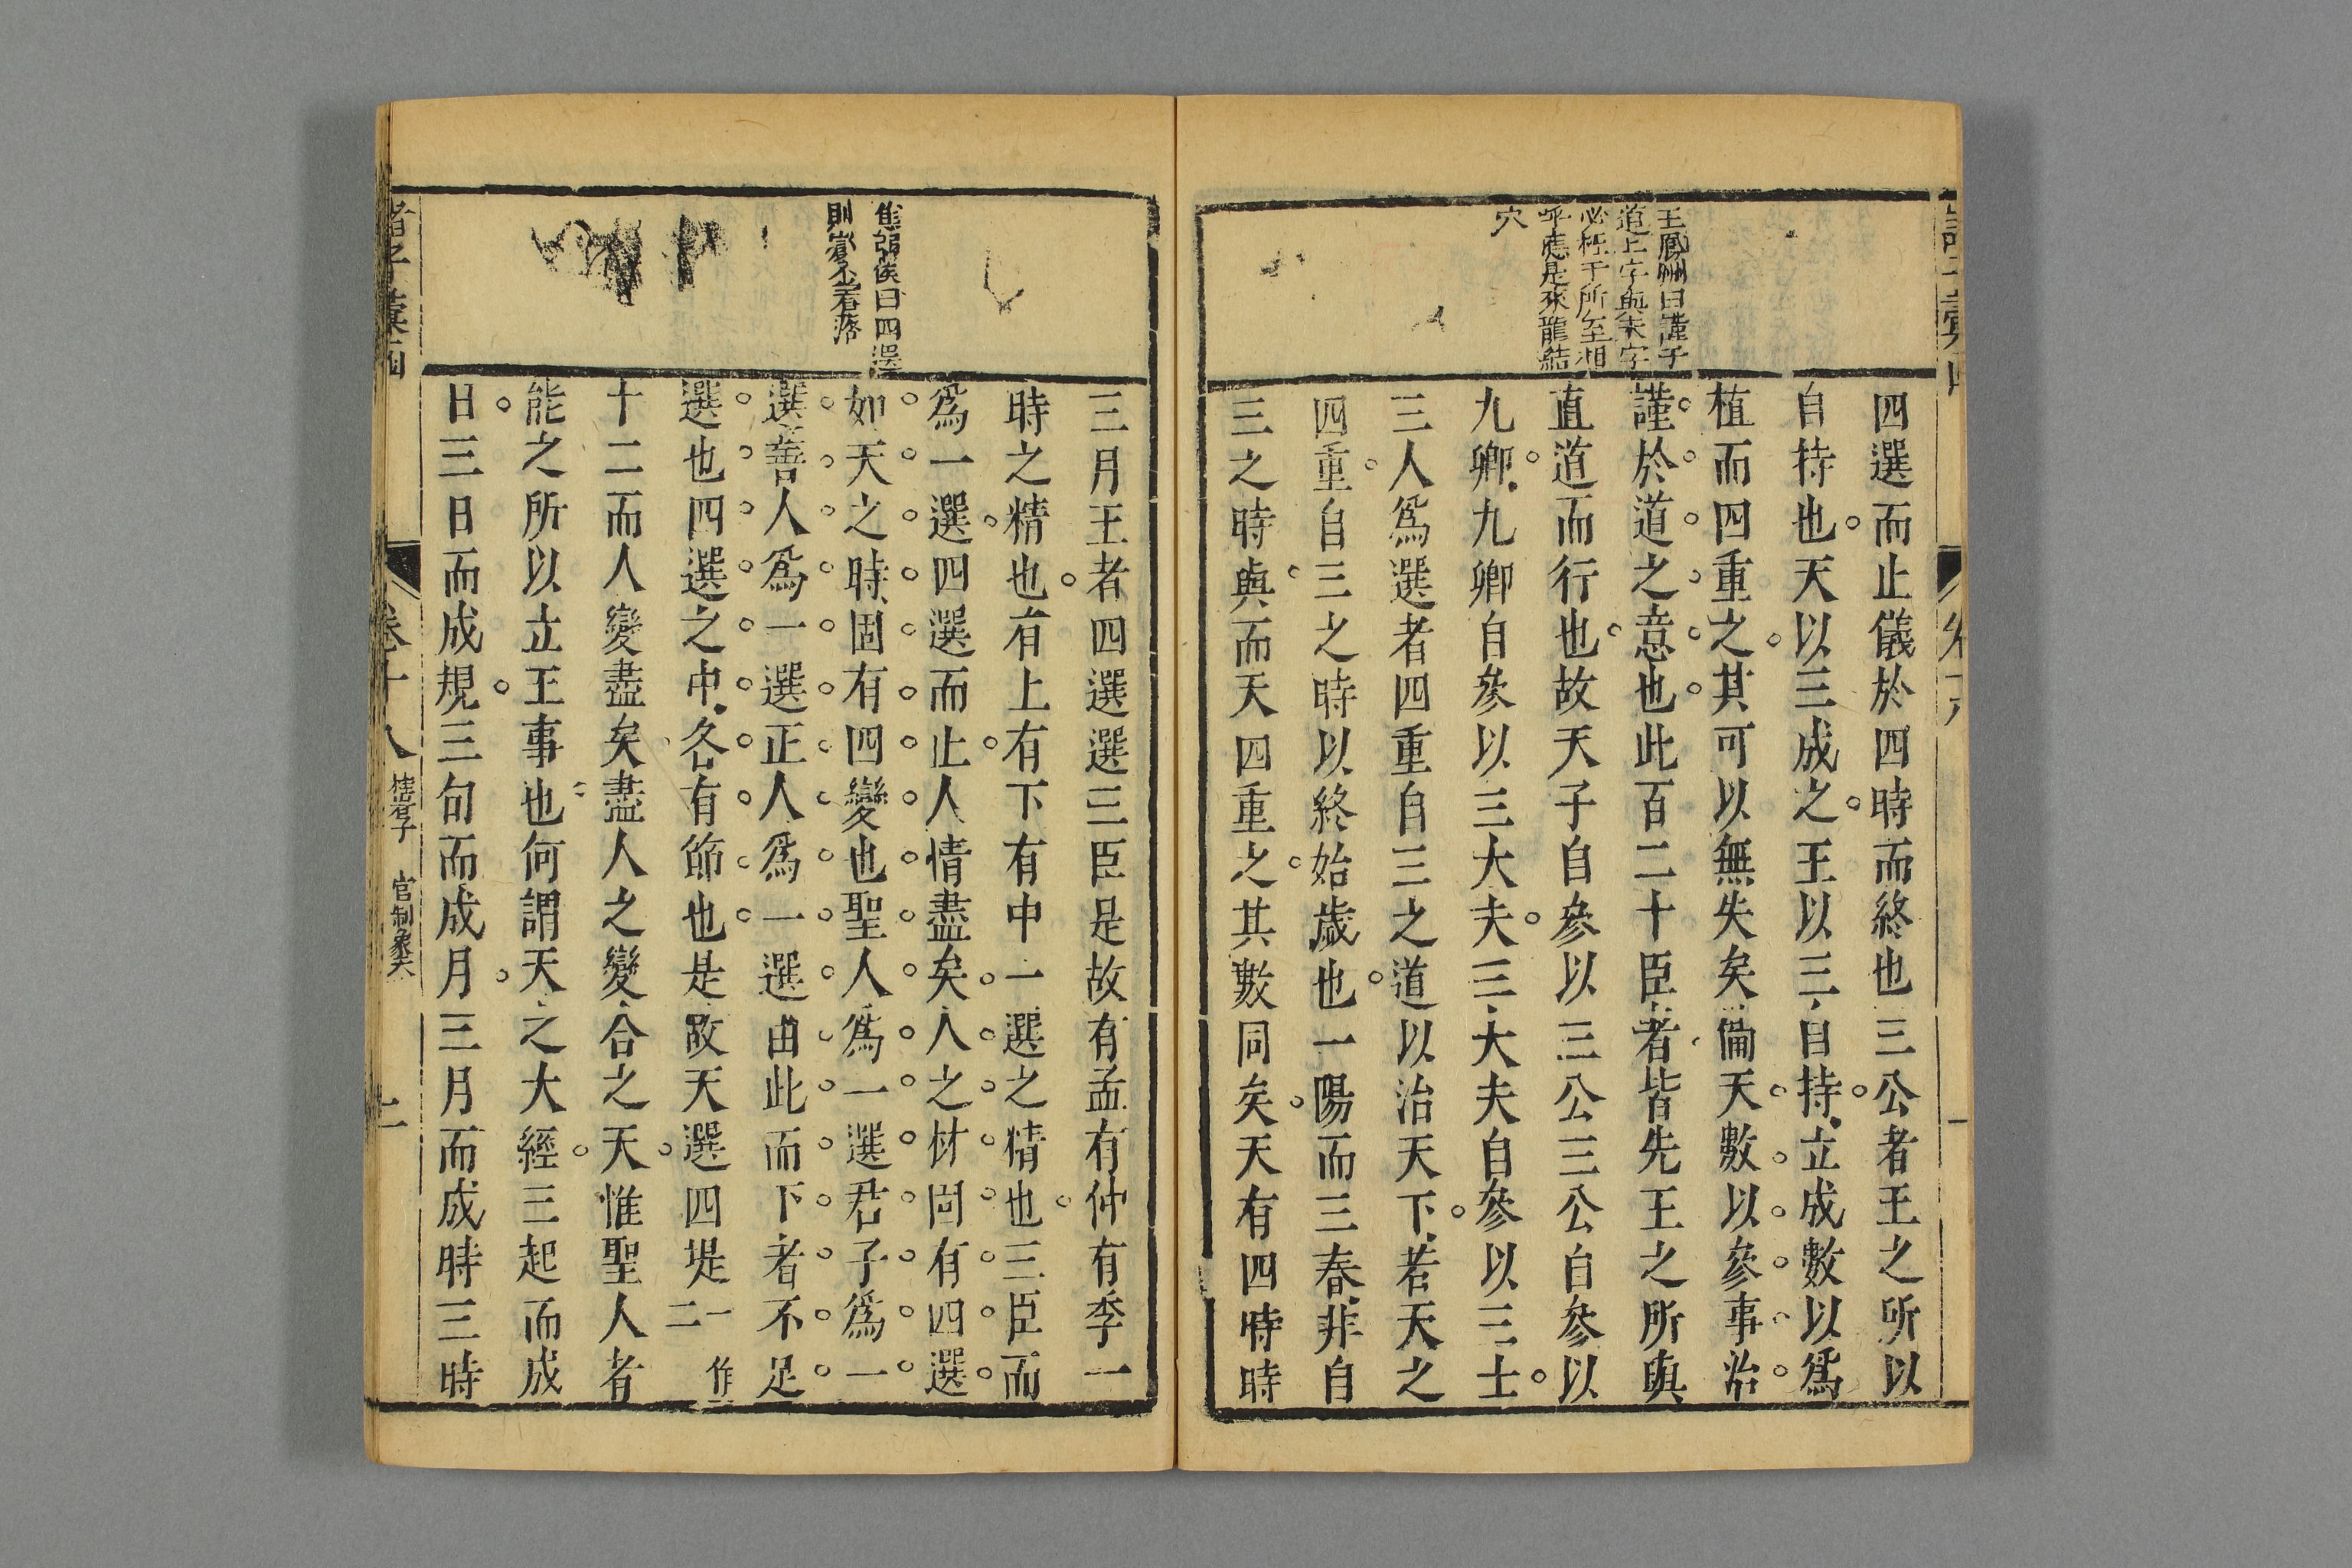 王鳳洲曰謹于
道上字與夫字
必枉于所至相
呼應是來龍結
穴
四選而止儀於四時而終也三公者王之所以
自持也天以三成之王以三自持立成數以爲
植而四重之其可以無失矣備天數以參事治
謹於道之意也此百二十臣者皆先王之所與
直道而行也故天子自參以三公三公自參以
九卿九卿自參以三大夫三大夫自參以三士
三人爲選者四重自三之道以治天下若天之
四重自三之時以終始歲也一陽而三春非自
三之時與而天四重之其數同矣天有四時時
焦弱侯曰四選
則
着落
三月王者四選選三臣是故有孟有仲有季一
時之精也有上有下有中一選之精也三臣而
爲一選四選而止人情盡矣人之材固有四選
如天之時固有四變也聖人爲一選君子爲一
選善人爲一選正人爲一選由此而下者不足
選也四選之中各有節也是故天選四堤一作
二
十二而人變盡矣盡人之變合之天惟聖人者
能之所以立王事也何謂天之大經三起而成
日三日而成規三旬而成月三月而成時三時
諸子彙函
卷十八
桂巖子
官制象天
二